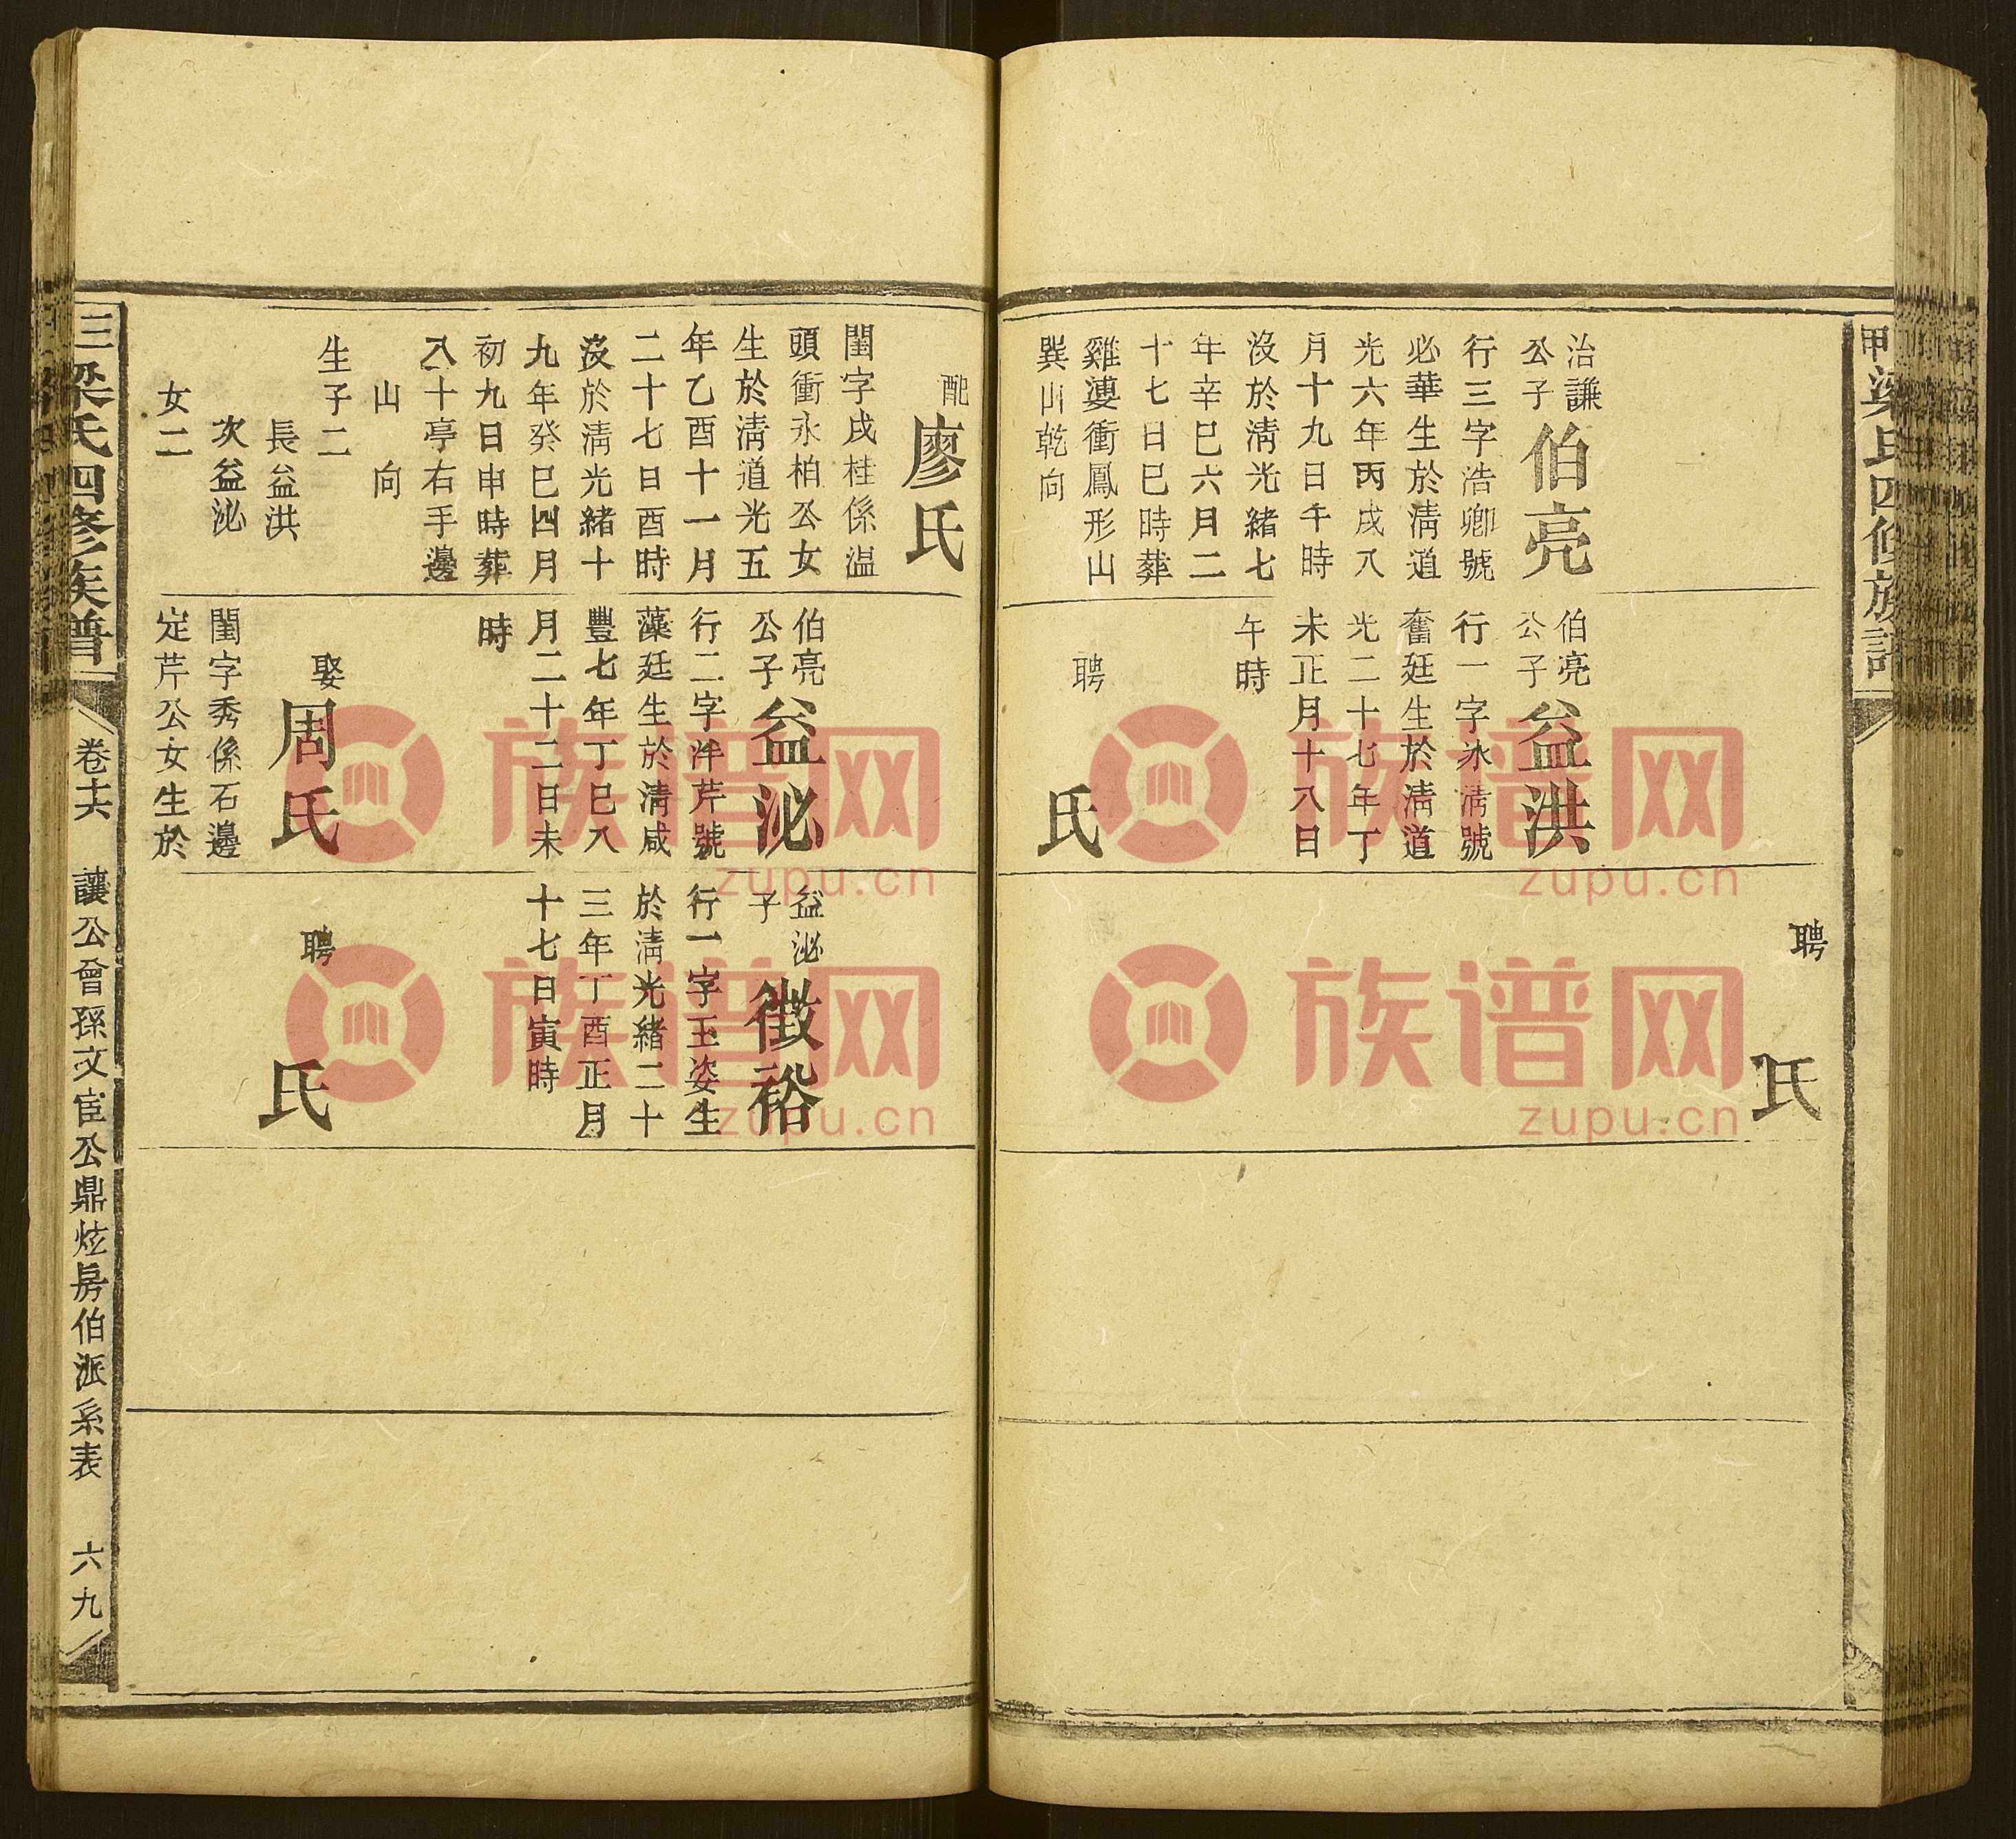 梁氏四修族譜
治謙
公子
伯亮
行三字浩卿號
必華生於淸道
光六年丙戌八
月十九日午時
沒於淸光緒七
年辛巳六月二
十七日巳時葬
雞婆衝鳳形山
巽山乾向
伯亮
公子
益洪
行一字冰淸號
奮廷生於淸道
光二十七年丁
未正月十八日
午時
聘
氏
聘
氏
配
廖氏
閨字戌桂係温
頭衝永柏公女
生於淸道光五
年乙酉十一月
二十七日酉時
沒於淸光緒十
九年癸巳四月
初九日申時葬
八十亭右手邊
山向
生子二
長益洪
次益泌
女二
伯亮
公子
益泌
行二字泮芹號
藻廷生於淸咸
豐七年丁巳八
月二十二日未
時
娶
周氏
閨字秀係石邊
定芹公女生於
益泌
子
徵裕
行一字玉姿生
於淸光緒二十
三年丁酉正月
十七日寅時
聘
氏
三梁氏四修族譜
卷十六
讓公曾孫文宦公鼎炫房伯派系表
六九
族谱网
zupu.cn
族谱网
zupu.cn
族谱网
zupu.cn
族谱网
zupu.cn